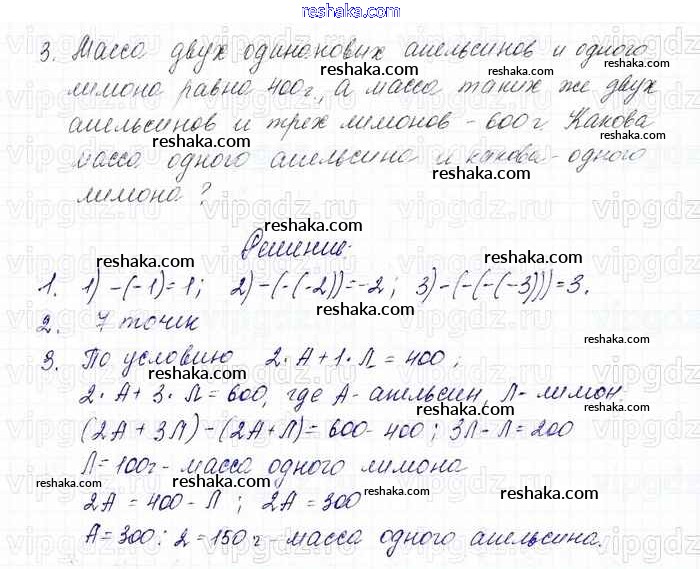 reshaka.com
3. Масса двух одинаковых апельсинов и одного
reshaka.com reshaka.com
лимона равна 400г, а масса таких же двух
reshaka.com reshaka.com
апельсинов и трех лимонов - 600г. Какова
reshaka.com reshaka.com
масса одного апельсина и какова - одного
лимона?
reshaka.com
Решение:
reshaka.com reshaka.com
1. 1) -(-1)=1; 2) -(-(-2))=-2; 3) -(-(-(-3)))=3.
reshaka.com
2. 7 точек
reshaka.com reshaka.com
3. По условию 2·А+1·Л=400;
reshaka.com
2·А+3·Л=600, где А- апельсин, Л- лимон.
reshaka.com reshaka.com
(2А+3Л)-(2А+Л)=600-400; 3Л-Л=200
reshaka.com
Л=100г- масса одного лимона
reshaka.com reshaka.com
2А=400-Л; 2А=300
reshaka.com
А=300:2=150г- масса одного апельсина.
reshaka.com reshaka.com
reshaka.com